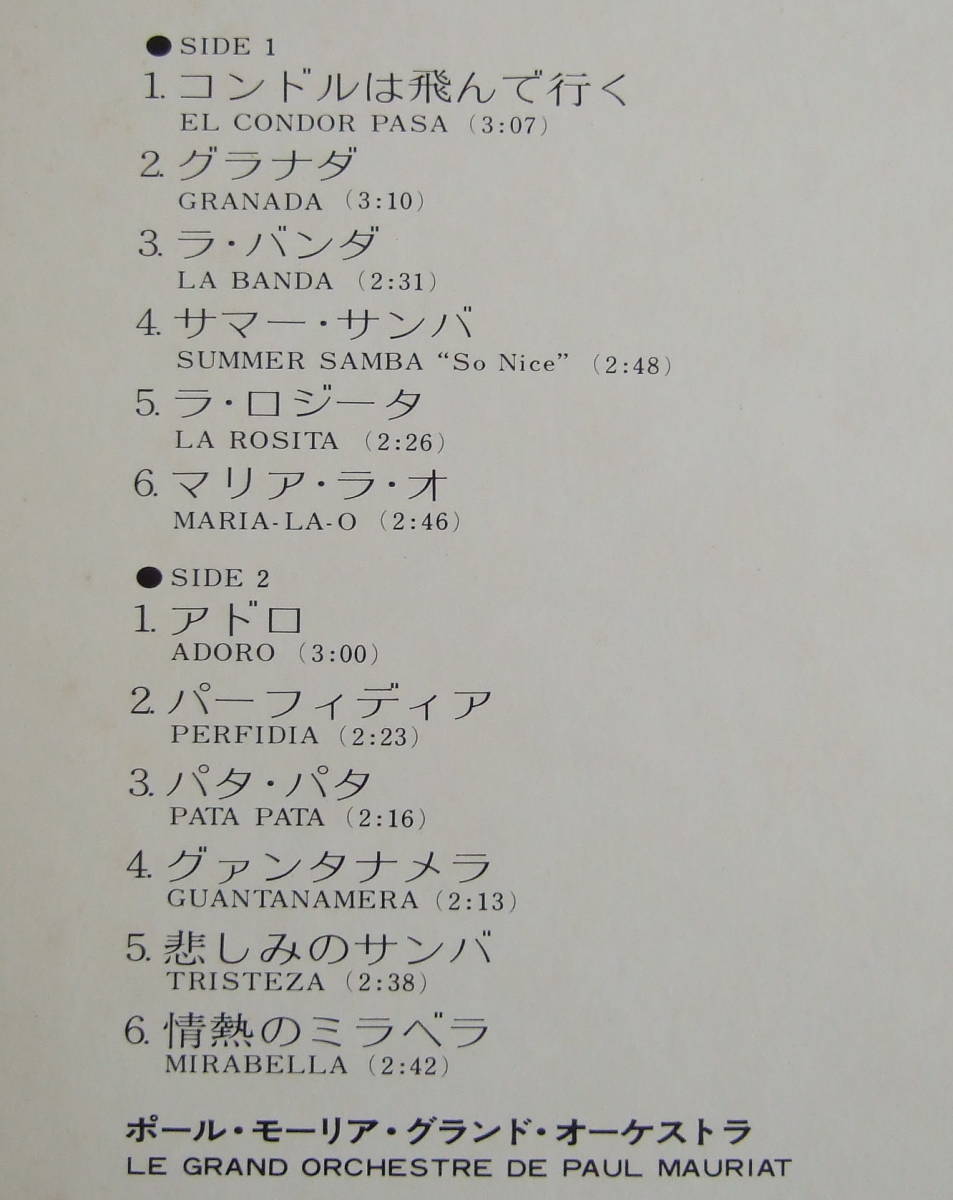 ● SIDE 1
1. コンドルは飛んで行く
EL CONDOR PASA (3:07)
2. グラナダ
GRANADA (3:10)
3. ラ・バンダ
LA BANDA (2:31)
4. サマー・サンバ
SUMMER SAMBA “So Nice” (2:48)
5. ラ・ロジータ
LA ROSITA (2:26)
6. マリア・ラ・オ
MARIA-LA-O (2:46)
● SIDE 2
1. アドロ
ADORO (3:00)
2. パーフィディア
PERFIDIA (2:23)
3. パタ・パタ
PATA PATA (2:16)
4. グァンタナメラ
GUANTANAMERA (2:13)
5. 悲しみのサンバ
TRISTEZA (2:38)
6. 情熱のミラベラ
MIRABELLA (2:42)
ポール・モーリア・グランド・オーケストラ
LE GRAND ORCHESTRE DE PAUL MAURIAT